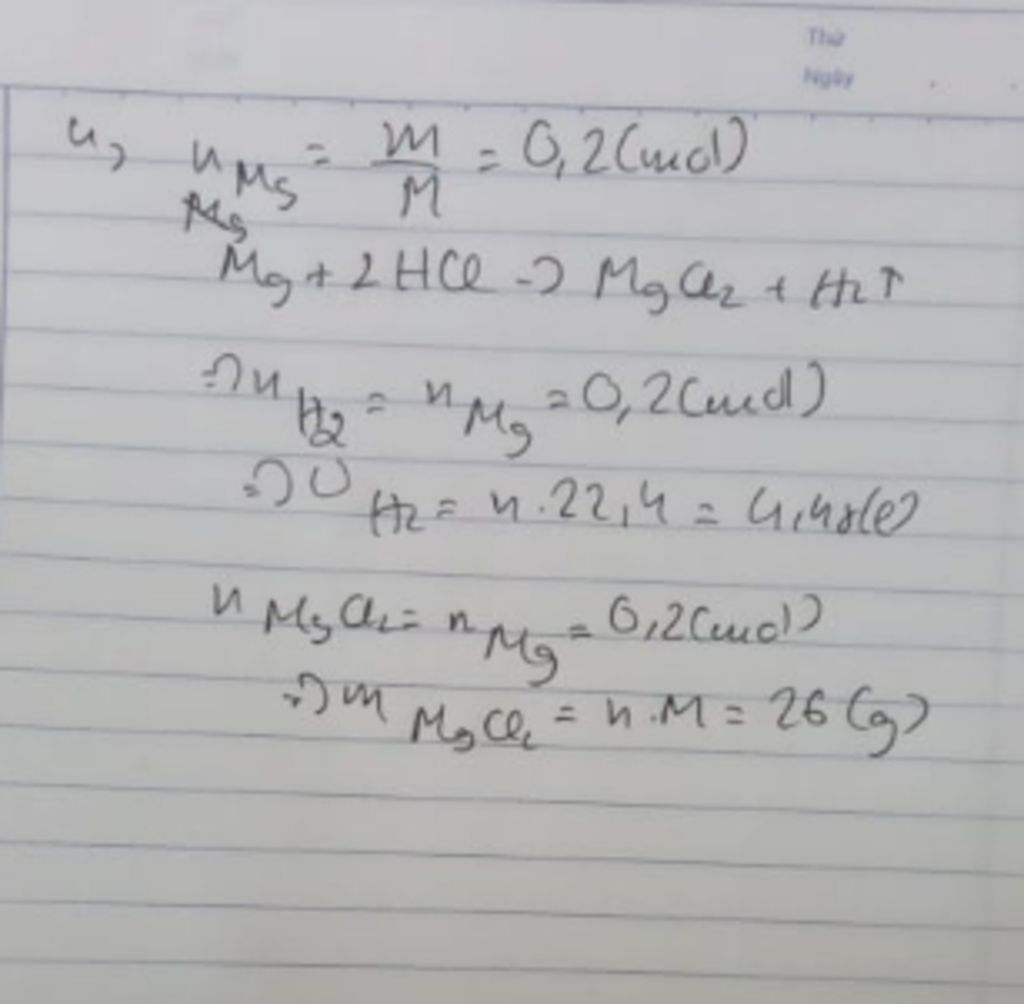 Thứ
Ngày
4, nMg = m/M = 0,2(mol)
Mg
Mg + 2HCl → MgCl2 + H2↑
⇒ nH2 = nMg = 0,2(mol)
⇒ VH2 = n.22,4 = 4,48(l)
nMgCl2 = nMg = 0,2(mol)
⇒ mMgCl2 = n.M = 26(g)